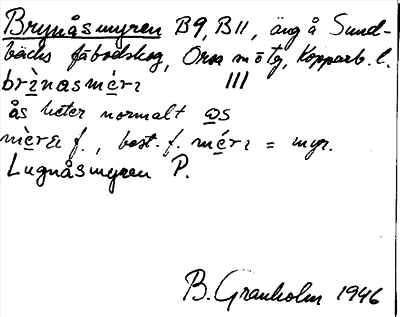 Brynåsmyren B9, B11, äng å Sund-
bäcks fäbodskog, Orsa mötg, Kopparb. l.
brìnasméri III
ås heter normalt ɷs
mèræ f., best. f. méri = myr.
Lugnåsmyren P.
B. Granholm 1946